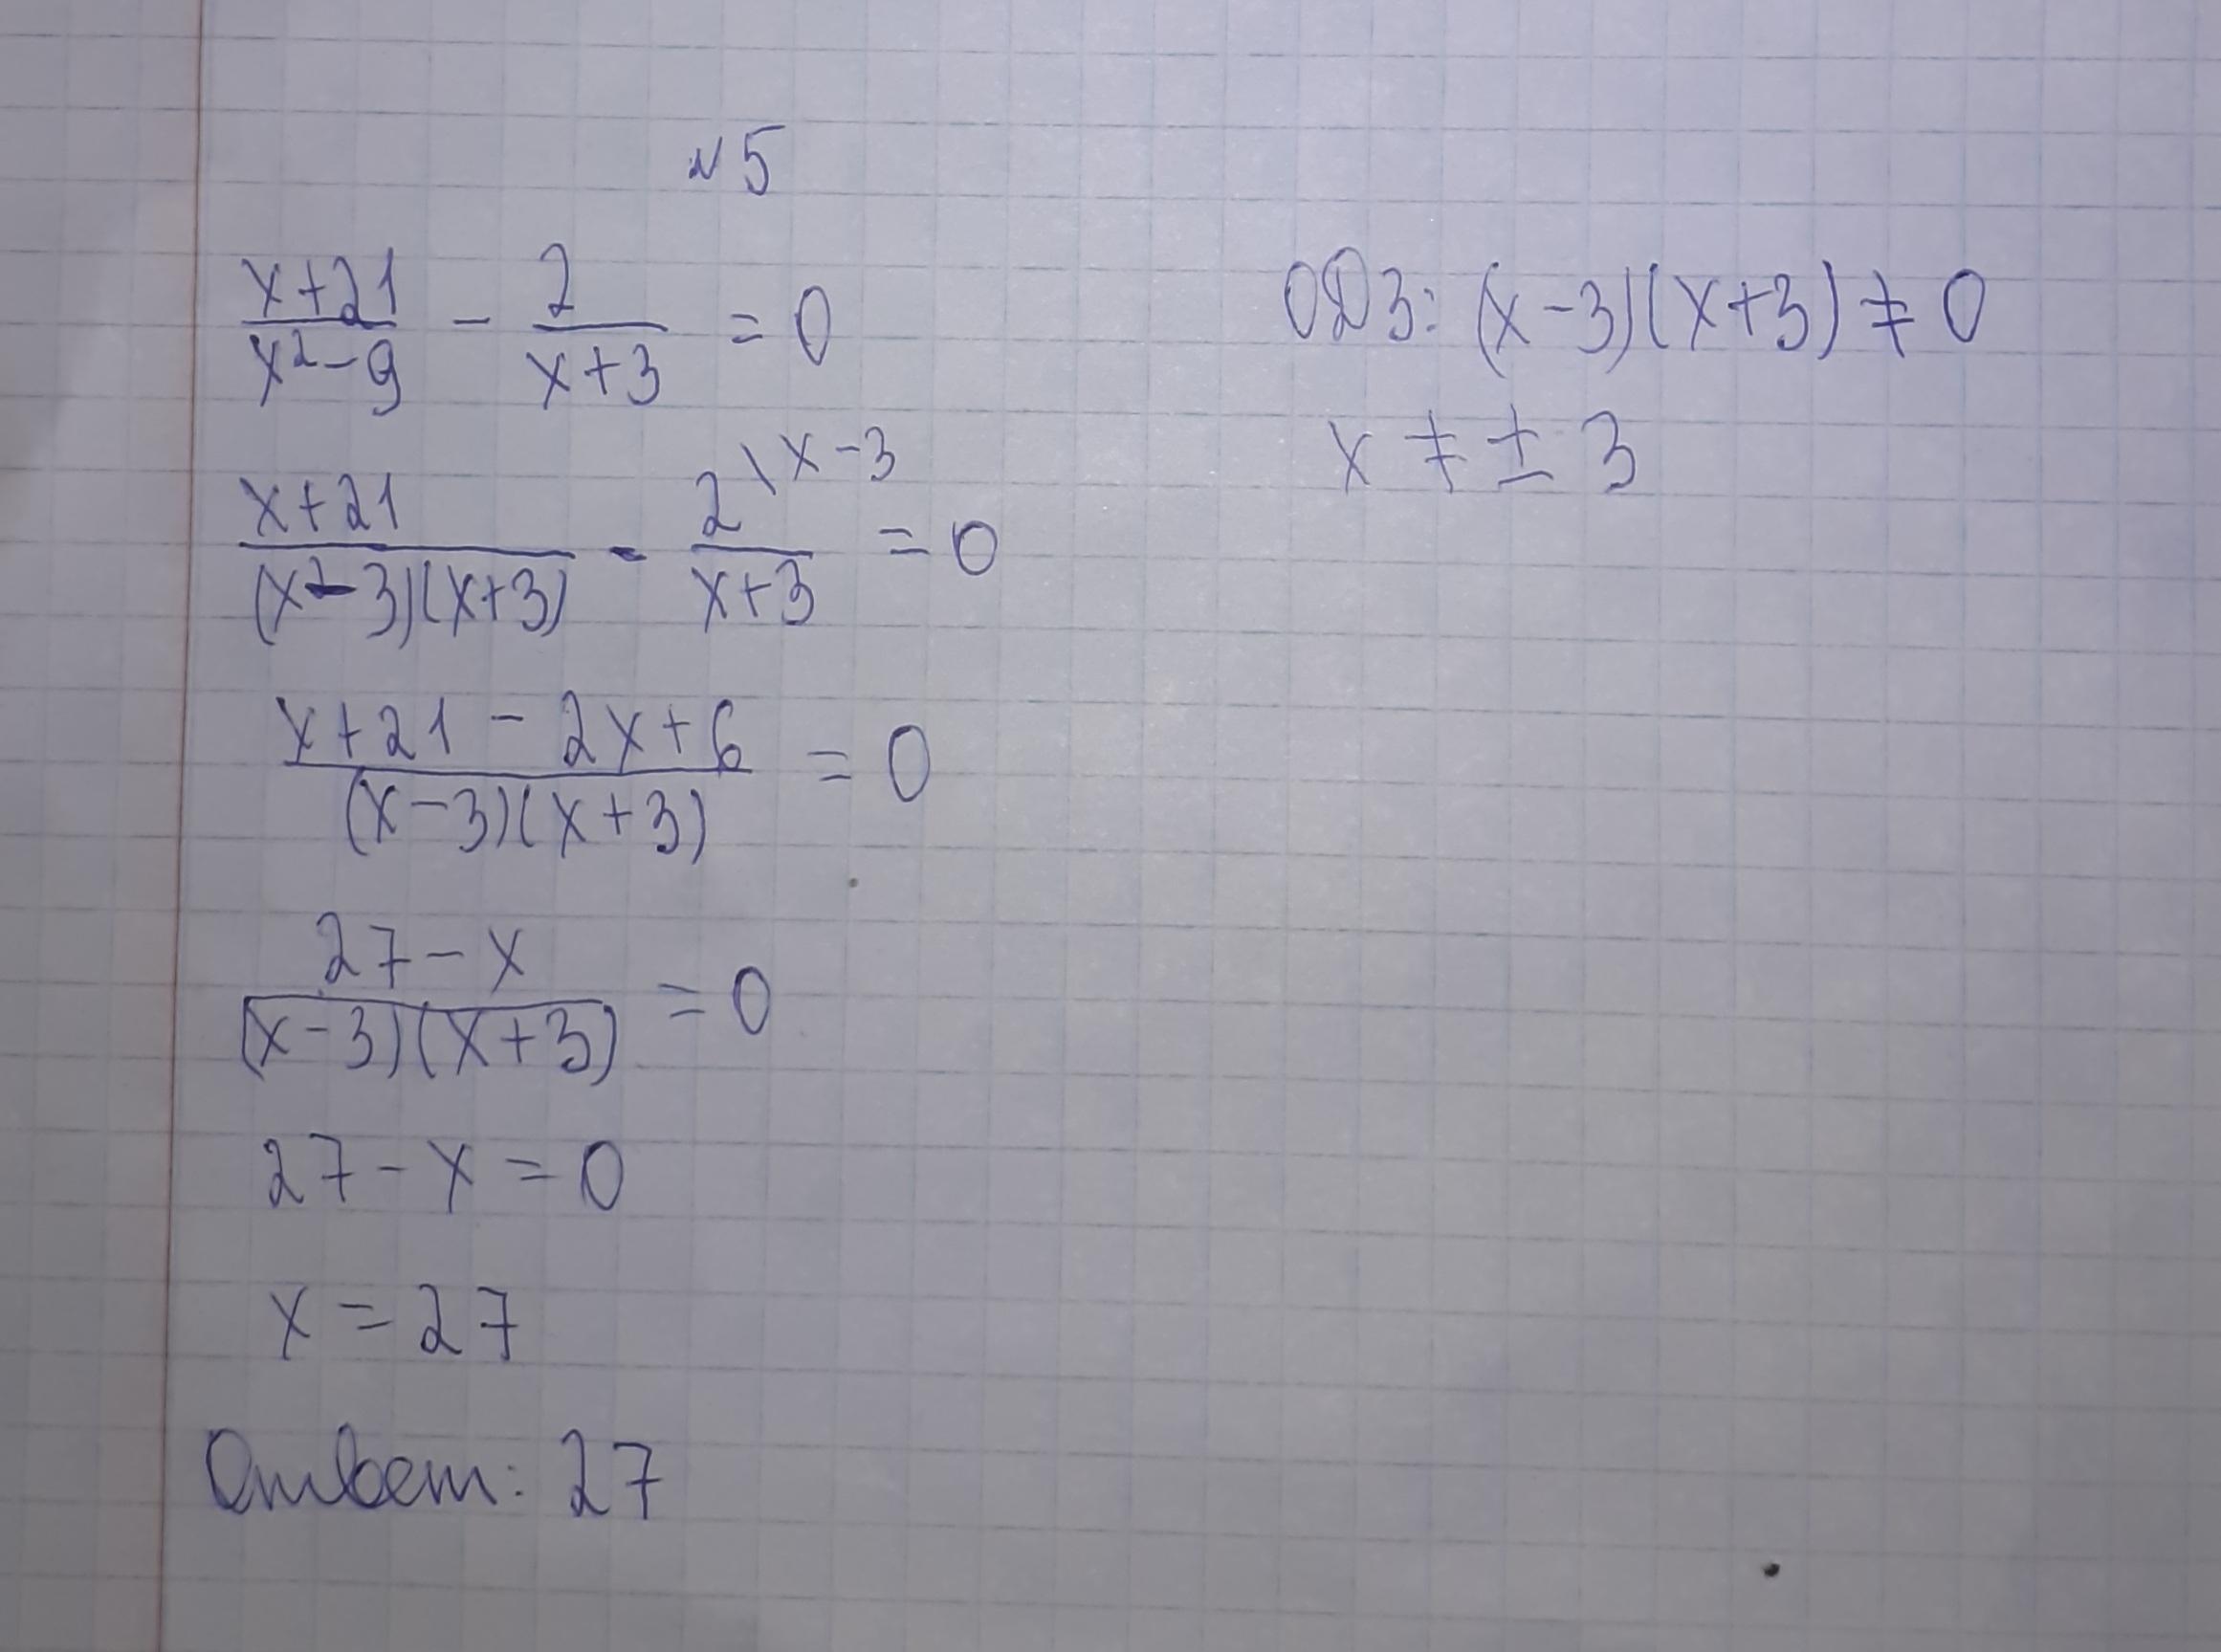 №5
(x+21)/(x²-9) - 2/(x+3) = 0
ОДЗ: (x-3)(x+3) ≠ 0
x ≠ ± 3
(x+21)/((x-3)(x+3)) - 2\x-3/(x+3) = 0
(x+21-2x+6)/((x-3)(x+3)) = 0
(27-x)/((x-3)(x+3)) = 0
27-x=0
x=27
Ответ: 27